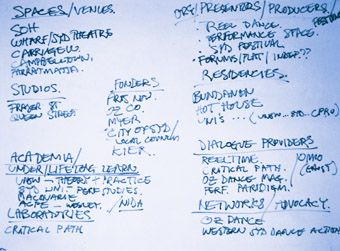 SPACES/VENUES.
SOH
WHARF/SYD THEATRE
CARRIAGEW.
CAMPBELLTOWN.
PARRAMATTA.
STUDIOS.
FRASER ST
QUEEN STREET
FUNDERS
ARTS NSW.
OZ CO.
MYER
CITY OF SYD/
LOCAL COUNCIL
KIER.
ACADEMIA/
UNDER/LIFELONG LEARN
UNSW - THEORY + PRACTICE
SYD UNI. - PERF STUDIES.
MACQUARIE
ACPE - WESLEY. / NIDA
LABORATORIES
CRITICAL PATH
ORG/PRESENTORS/PRODUCERS/
REEL DANCE.
PERFORMANCE SPACE.
SYD FESTIVAL
FORUMS/PLAT/INDEP??
RESIDENCIES.
BUNDANON
HOT HOUSE
UNI'S ... (UNSW...SYD..CPRU)
DIALOGUE PROVIDERS
REELTIME.
CRITICAL PATH.
OZ DANCE MAG.
PERF. PARADIGM.
OMEO
NETWORKS/ADVOCACY.
OZ DANCE
WESTERN SYD DANCE ACTION